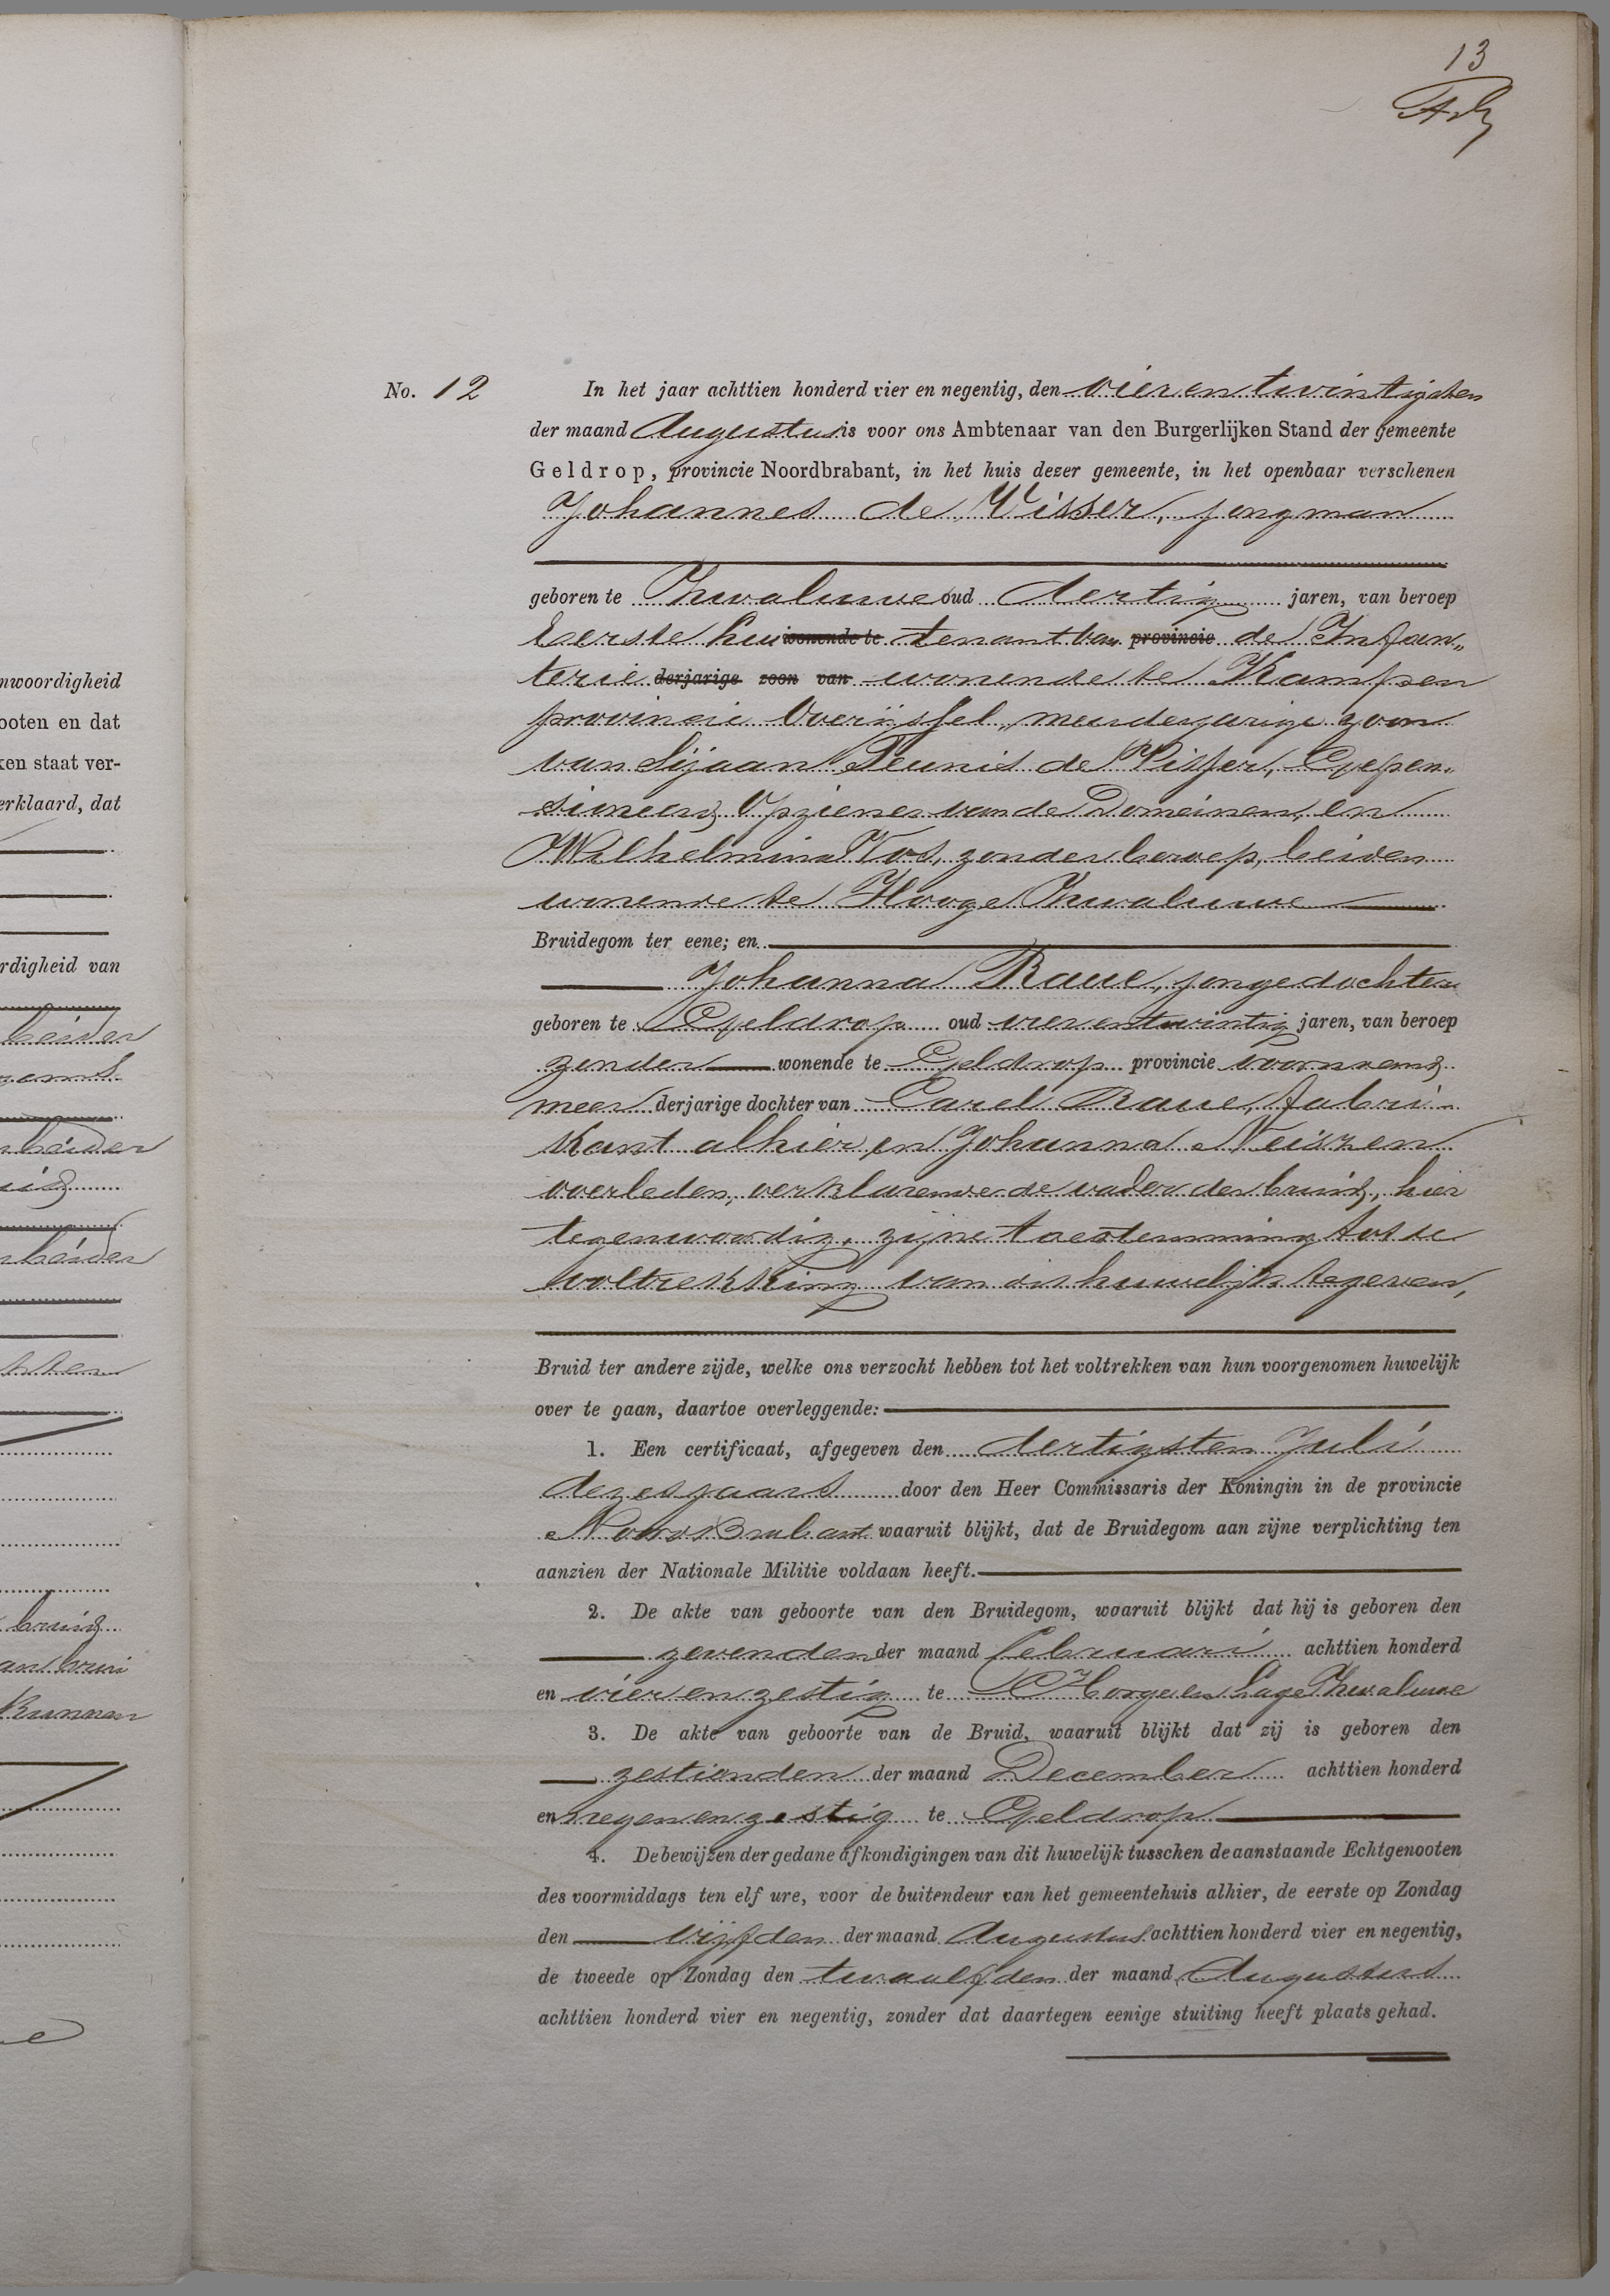 13
nwoordigheid
ooten en dat
ken staat ver-
erklaard, dat
rdigheid van
beider
beider
heider
bruid
kunnen
No. 12
In het jaar achttien honderd vier en negentig, den vier en twintigsten
der maand Augustus is voor ons Ambtenaar van den Burgerlijken Stand der gemeente
Geldrop, provincie Noordbrabant, in het huis dezer gemeente, in het openbaar verschenen
Johannes de Visser, jongman
geboren te Zwaluwe oud dertig jaren, van beroep
Eerste lui wonende te tenant van provincie de Infan„
terie derjarige zoon van wonende te Kampen
provincie Overijssel, meerderjarige zoon
van Sijaan Teunis de Visser, Gepen„
sioneerd Opziener van de Domeinen, en
Wilhelmina Vos, zonder beroep, beiden
wonende te Hooge Zwaluwe
Bruidegom ter eene; en
Johanna Raue, jongedochter
geboren te Geldrop oud vierentwintig jaren, van beroep
zonder wonende te Geldrop provincie voornoemd
meer derjarige dochter van Carel Raue, fabri-
kant alhier en Johanna Neiszen
overleden, verklarende de vader der bruid, hier
tegenwoordig, zijne toestemming tot de
voltrekking van dit huwelijk te geven,
Bruid ter andere zijde, welke ons verzocht hebben tot het voltrekken van hun voorgenomen huwelijk
over te gaan, daartoe overleggende:
1. Een certificaat, afgegeven den dertigsten Juli
dezes jaars door den Heer Commissaris der Koningin in de provincie
Noord Brabant waaruit blijkt, dat de Bruidegom aan zijne verplichting ten
aanzien der Nationale Militie voldaan heeft.
2. De akte van geboorte van den Bruidegom, waaruit blijkt dat hij is geboren den
zevenden der maand Februari achttien honderd
en vier en zestig te Hooge en Lage Zwaluwe
3. De akte van geboorte van de Bruid, waaruit blijkt dat zij is geboren den
zestienden der maand December achttien honderd
en negen en zestig te Geldrop
4. De bewijzen der gedane afkondigingen van dit huwelijk tusschen de aanstaande Echtgenooten
des voormiddags ten elf ure, voor de buitendeur van het gemeentehuis alhier, de eerste op Zondag
den vijfden der maand Augustus achttien honderd vier en negentig,
de tweede op Zondag den twaalfden der maand Augustus
achttien honderd vier en negentig, zonder dat daartegen eenige stuiting heeft plaats gehad.